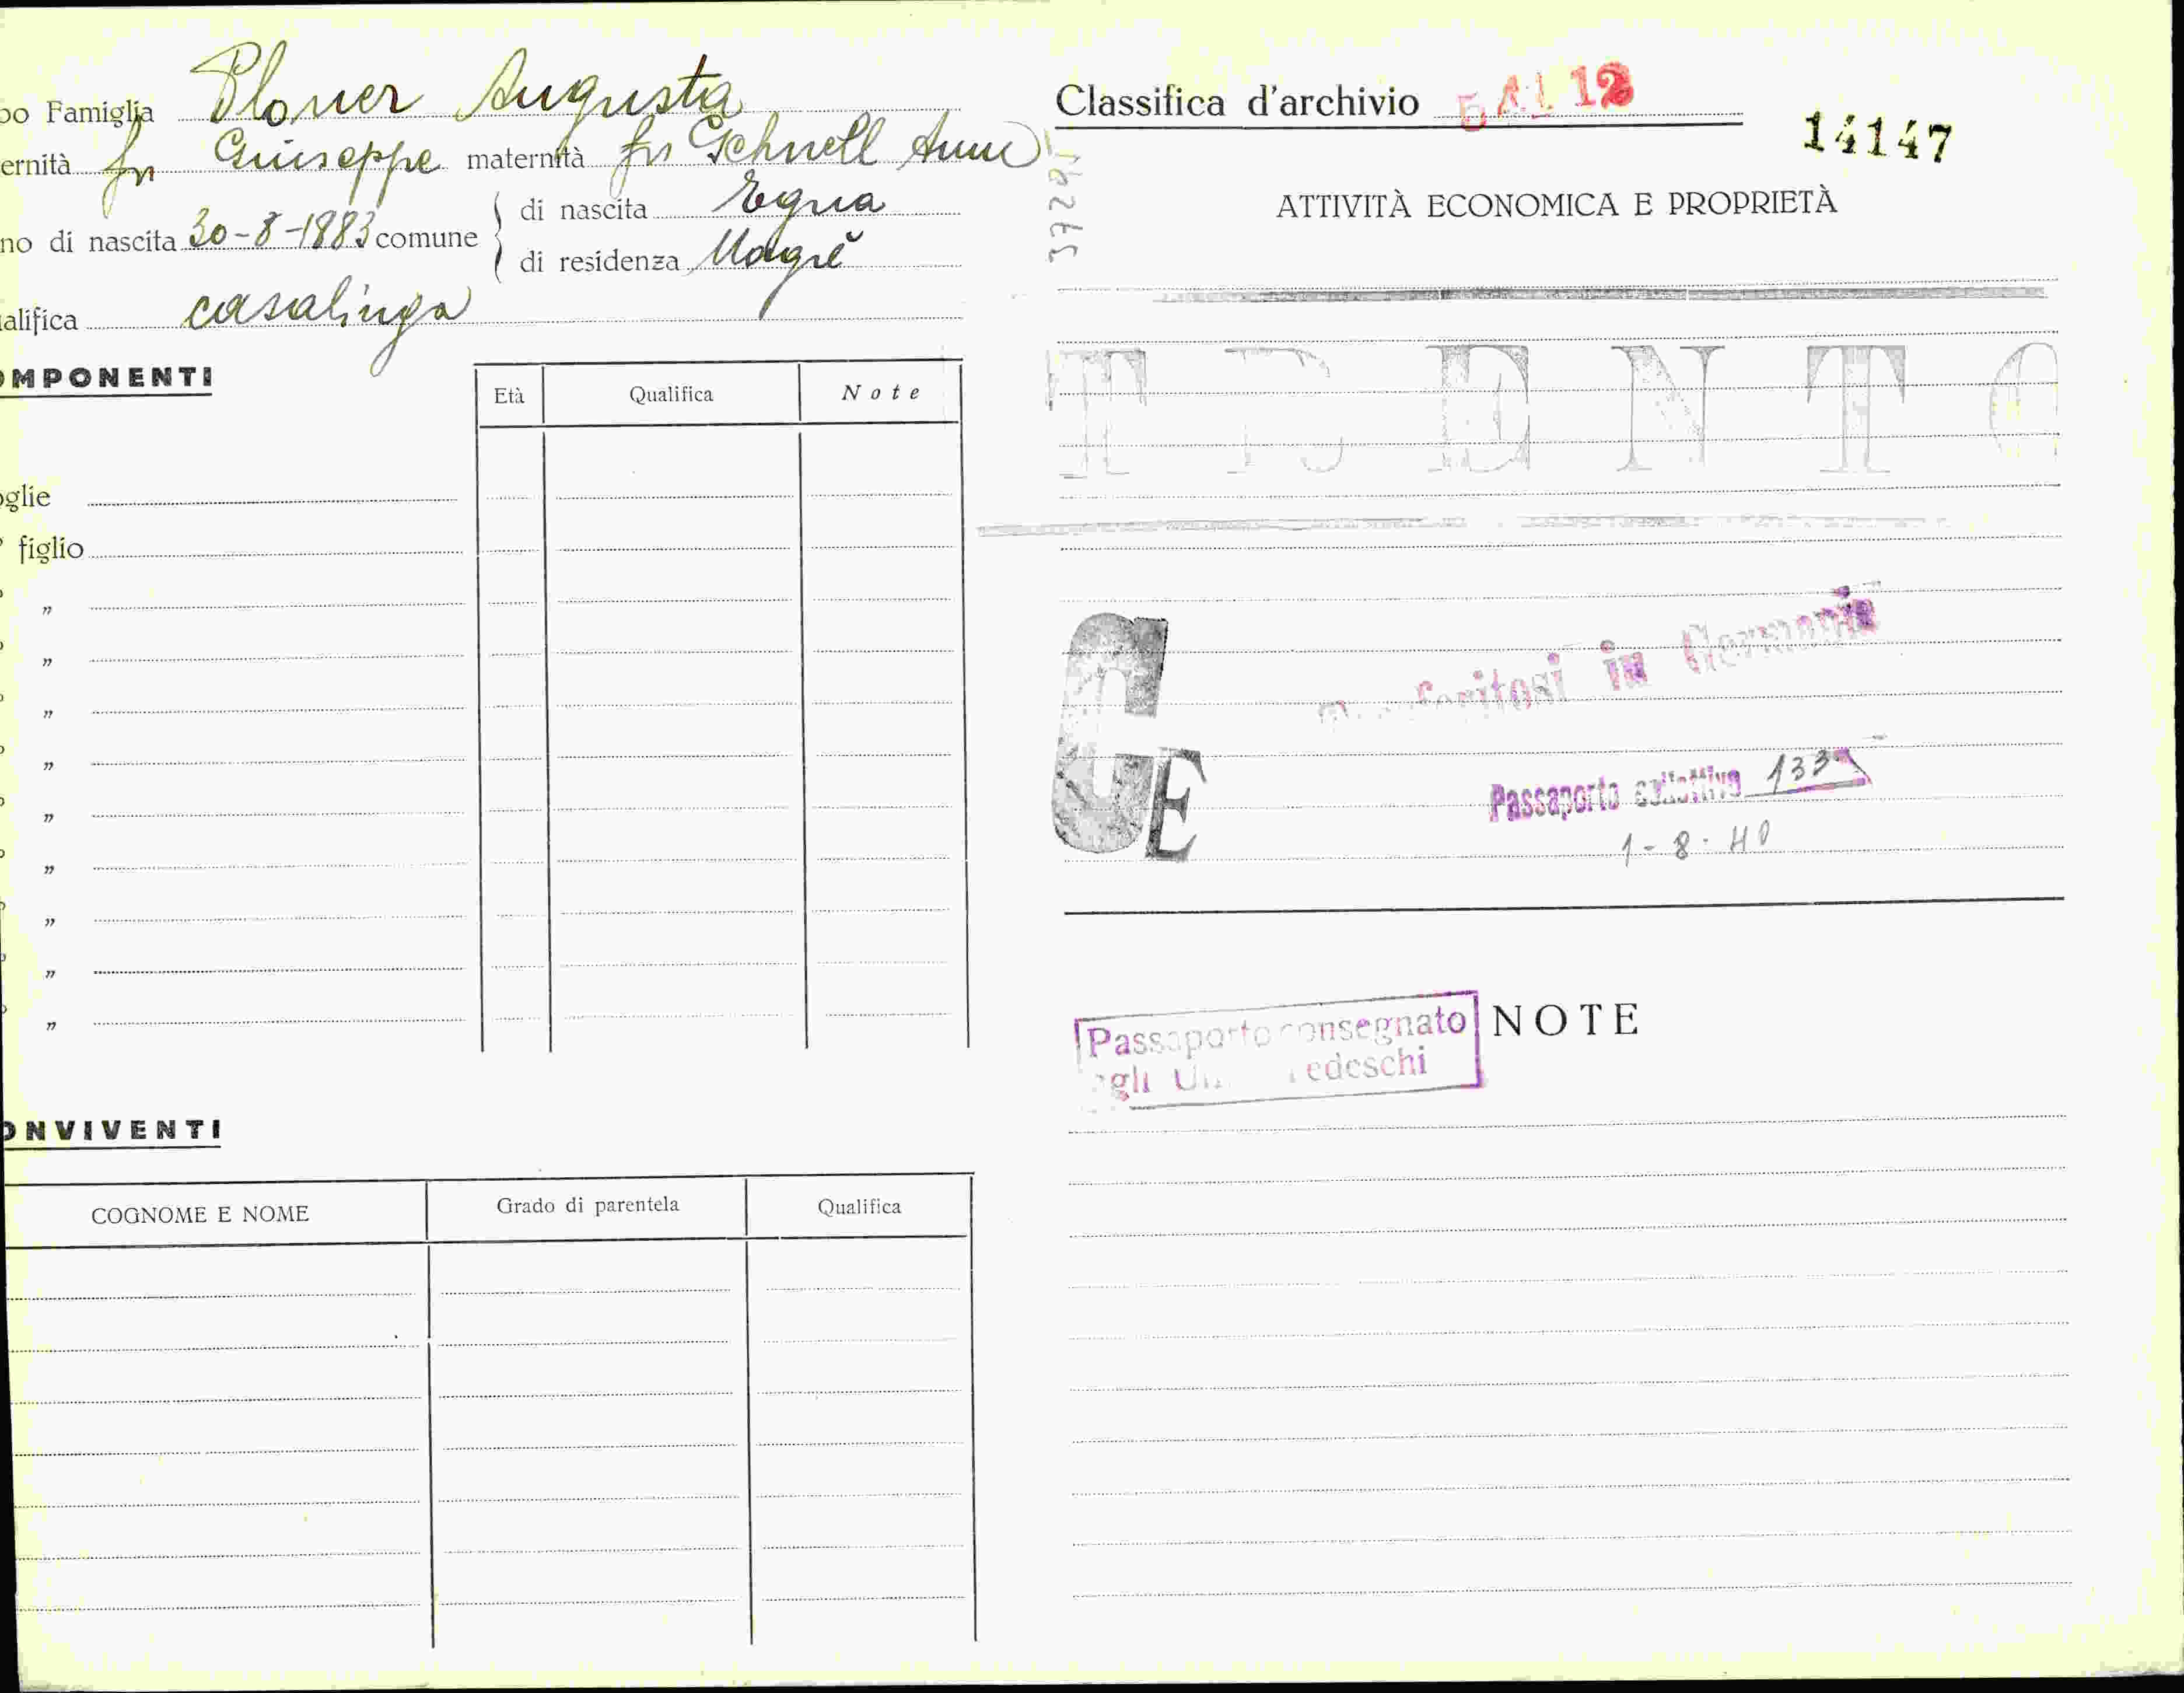 po Famiglia Ploner Augusta
ernità fu Giuseppe maternità fu Schnell Anna
no di nascita 30-8-1883 comune
di nascita Egna
di residenza Magrè
alifica casalinga
OMPONENTI
Età Qualifica Note
oglie
° figlio
° „
° „
° „
° „
° „
° „
° „
° „
° „
ONVIVENTI
COGNOME E NOME Grado di parentela Qualifica
Classifica d'archivio 12
14147
ATTIVITÀ ECONOMICA E PROPRIETÀ
TRENTO
GE
in Germania
Passaporto collettivo 133
1-8-40
Passaporto consegnato
agli Uff. Tedeschi
NOTE